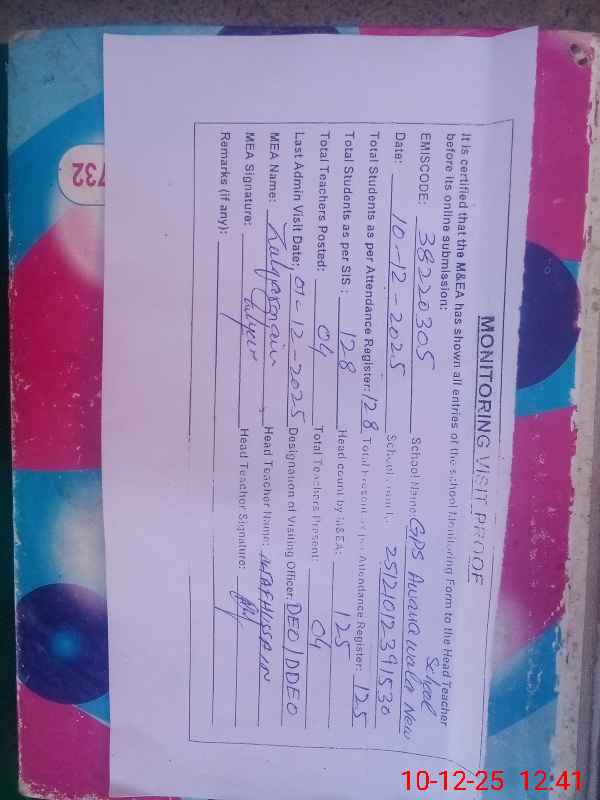 MONITORING VISIT PROOF
It is certified that the M&EA has shown all entries of the school Monitoring Form to the Head Teacher
before its online submission:
EMISCODE: 38220305 School Name: GPS Awana wala New School
Date: 10-12-2025 School 2512101239 1530
Total Students as per Attendance Register: 128 Total Present as per Attendance Register: 125
Total Students as per SIS: 128 Head count by M&EA: 125
Total Teachers Posted: 04 Total Teachers Present: 04
Last Admin Visit Date: 01-12-2025 Designation of Visiting Officer: DEO/DDEO
MEA Name: Head Teacher Name: ALTAF HUSSAIN
MEA Signature: Head Teacher Signature:
Remarks (if any):
732
10-12-25 12:41